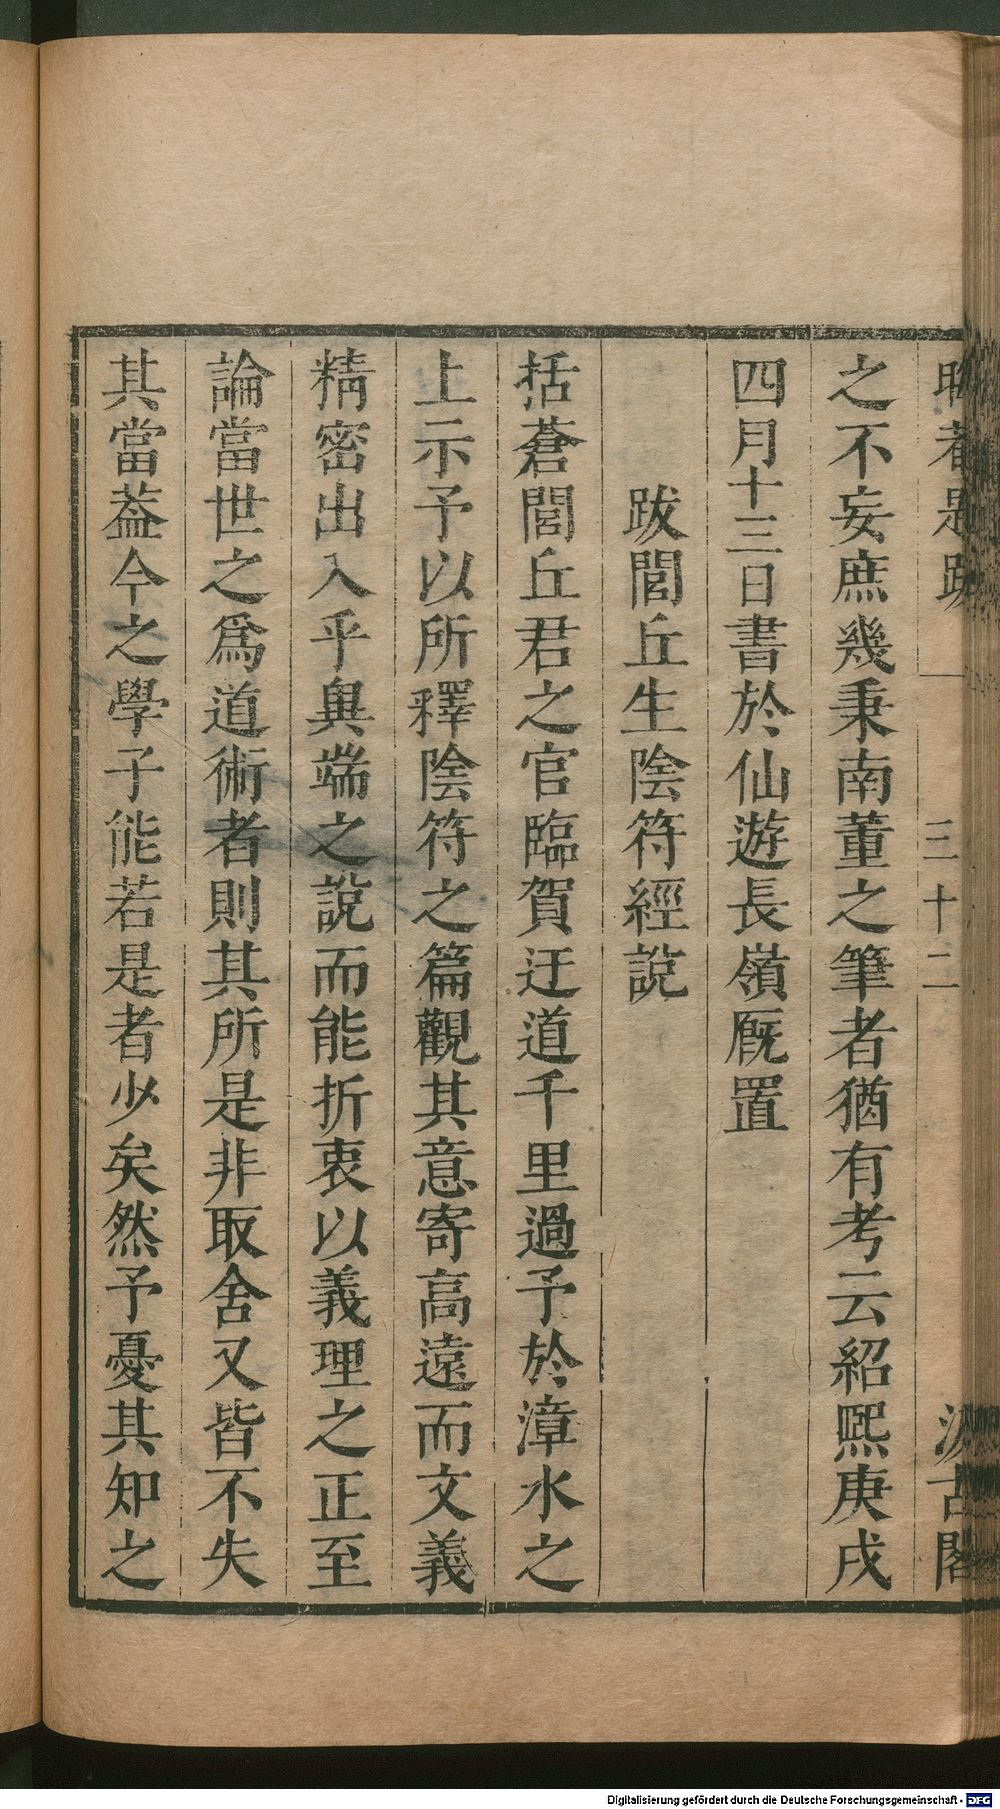 晦菴題跋 一 三十二 汲古閣
之不妄庶幾秉南董之筆者猶有考云紹熙庚戌
四月十三日書於仙遊長嶺厩置
跋閭丘生陰符經說
括蒼閭丘君之官臨賀迂道千里過予於漳水之
上示予以所釋陰符之篇觀其意寄高遠而文義
精密出入乎異端之說而能折衷以義理之正至
論當世之爲道術者則其所是非取舍又皆不失
其當葢今之學子能若是者少矣然予憂其知之
Digitalisierung gefördert durch die Deutsche Forschungsgemeinschaft - DFG